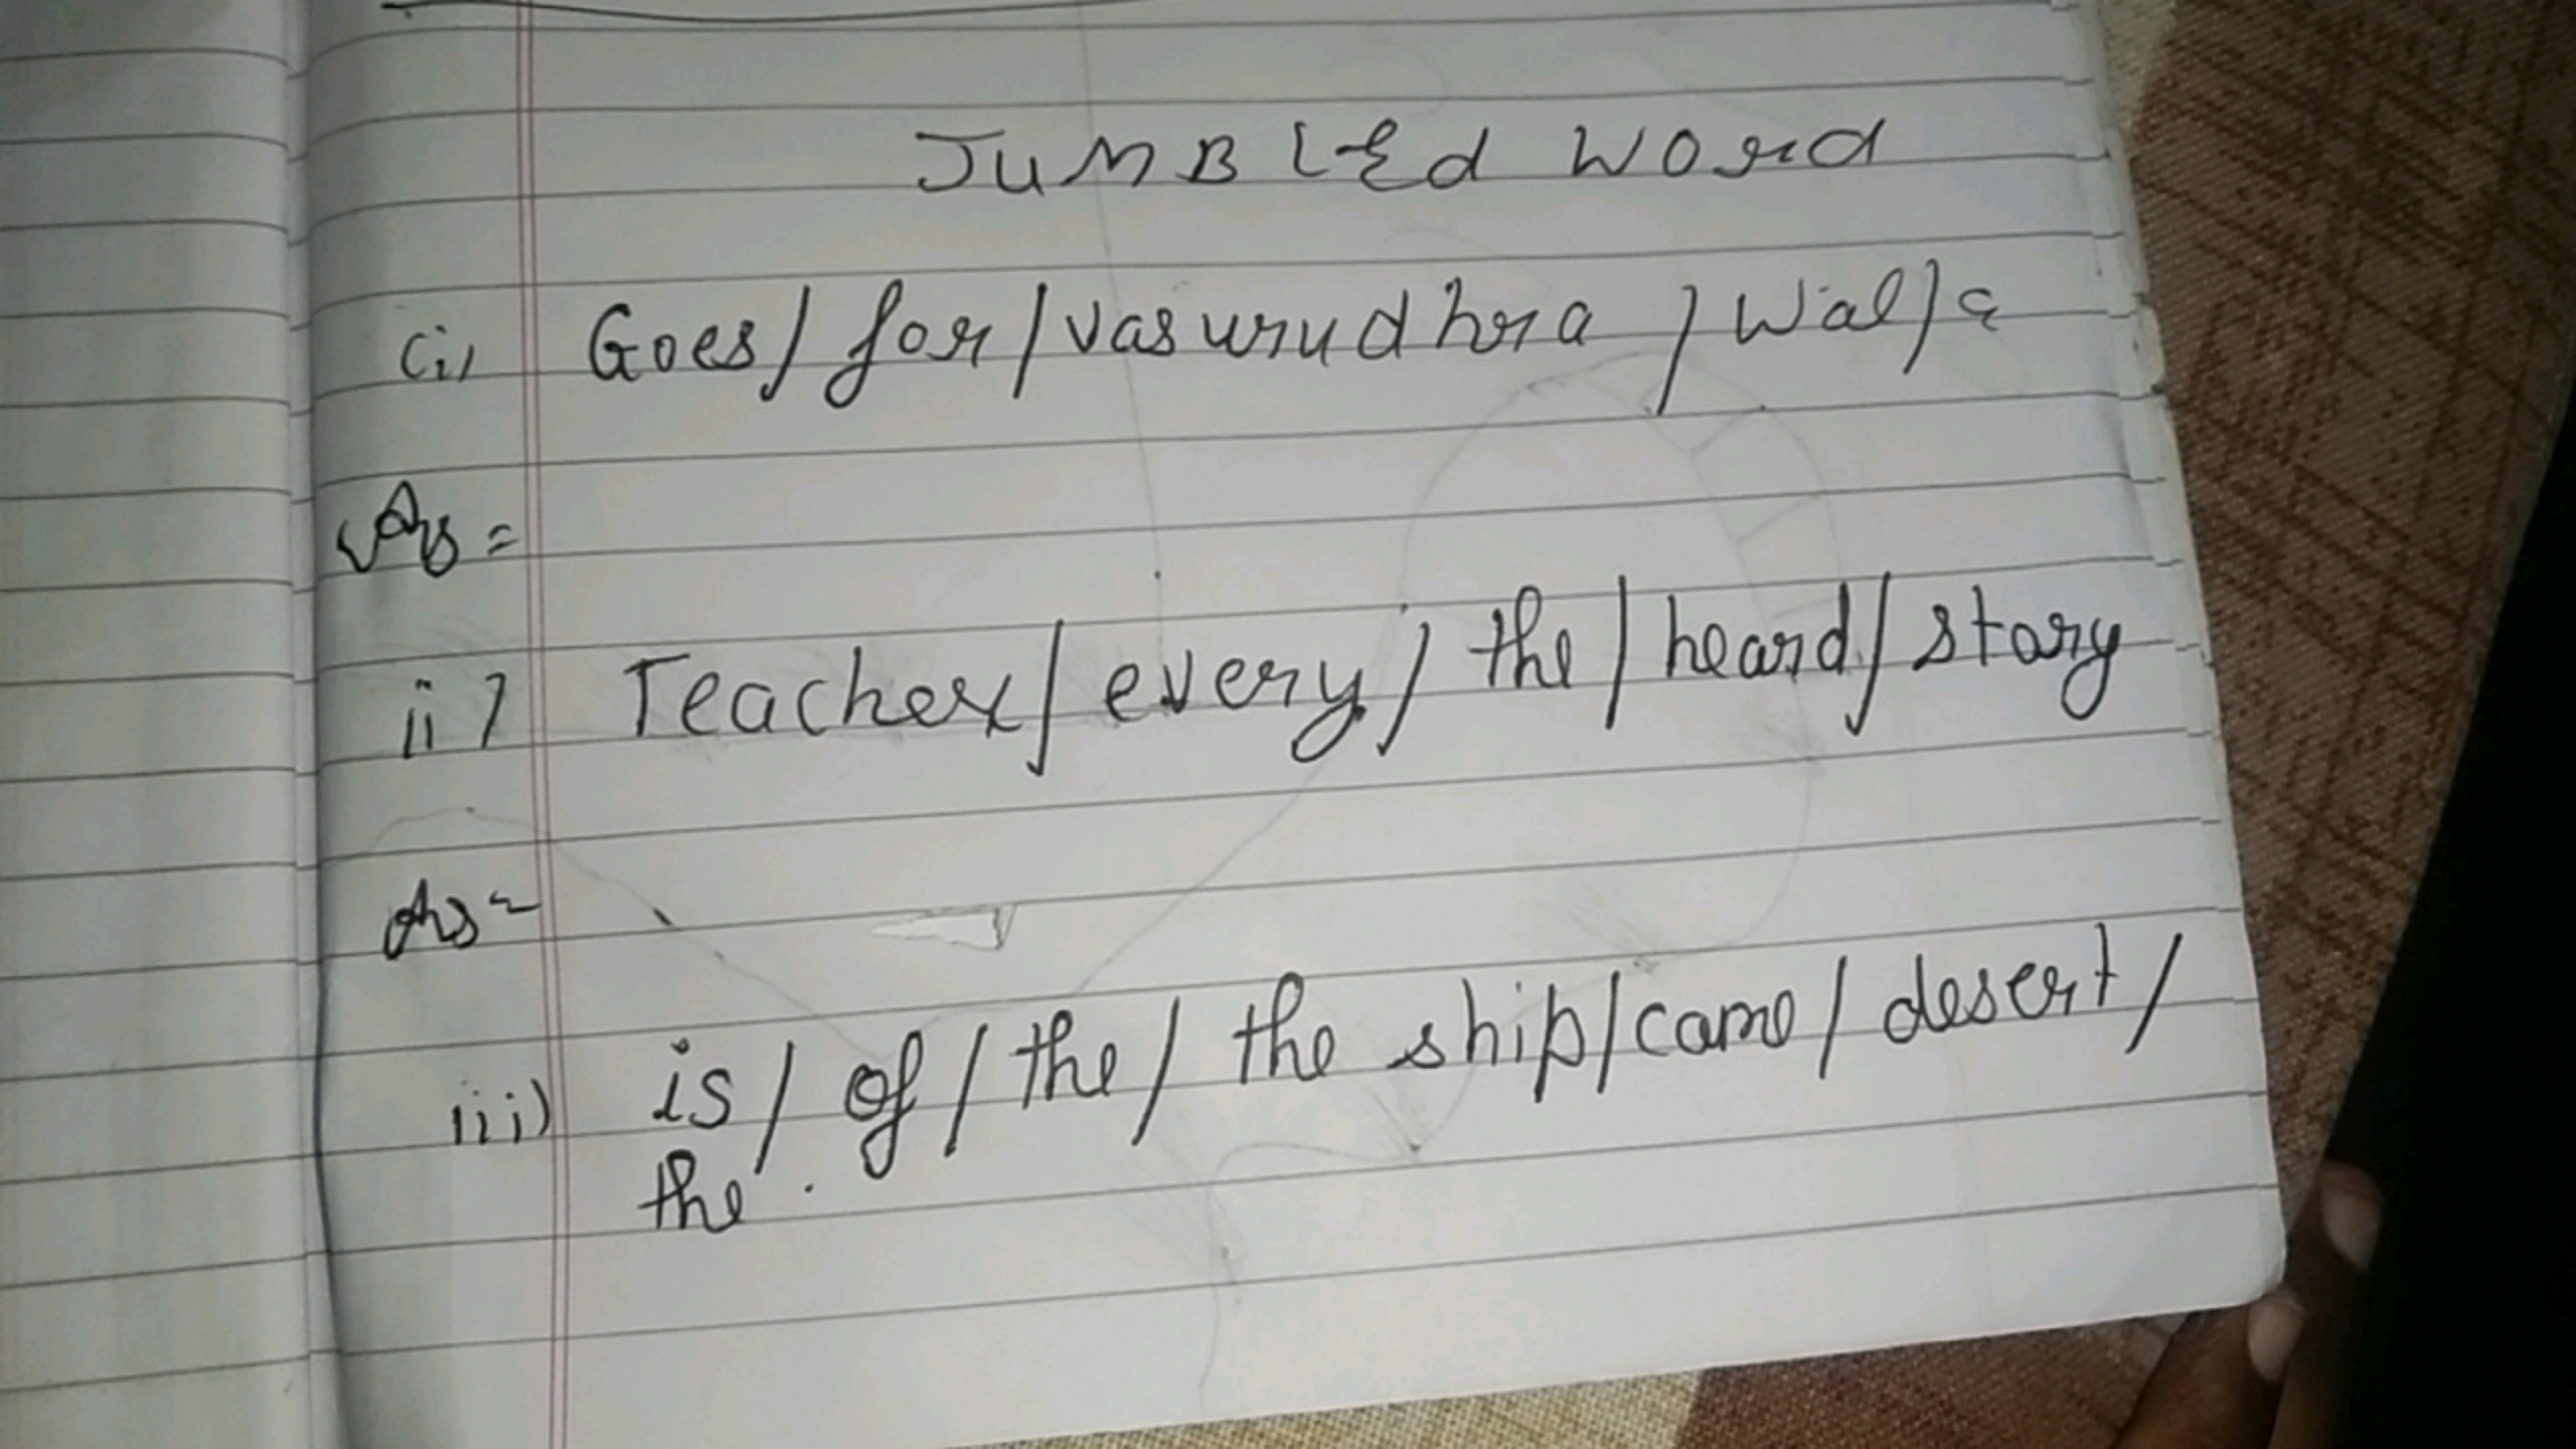 JUMBLEd Word
(i) Goes / for / vasurudhra / Wal / a
Ans =
ii) Teacher / every / the / heard / story
Ans =
iii) is / of / the / the ship / came / desert /
the .